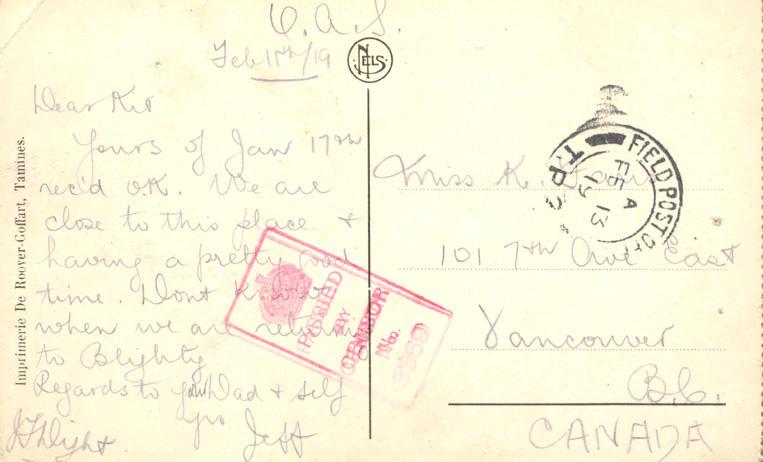 O.A.S.
Feb 11th/19
NELS.
Dear Kit
Yours of Jan 17th
rec'd O.K. We are
close to this place &
having a pretty good
time. Dont know
when we are returning
to Blighty
Regards to your Dad & self
yrs Jeff
Miss K.
101 7th Ave East
Vancouver
B.C.
CANADA
FIELD POST OFF
T.P.
A
FE 13
19
PASSED
BY
CENSOR
No.
Imprimerie De Roover-Goffart, Tamines.